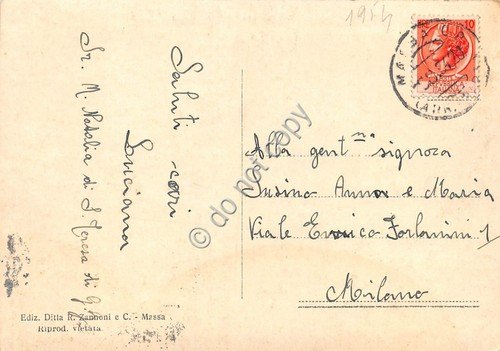 1954
10
Saluti cari
Luciana
Sr. M. Natalia di S. Teresa di G.
Alla gent.ma signora
Susino Anna e Maria
Viale Enrico Forlanini 1
Milano
Ediz. Ditta R. Zannoni e C. - Massa
Riprod. vietata
© do not copy